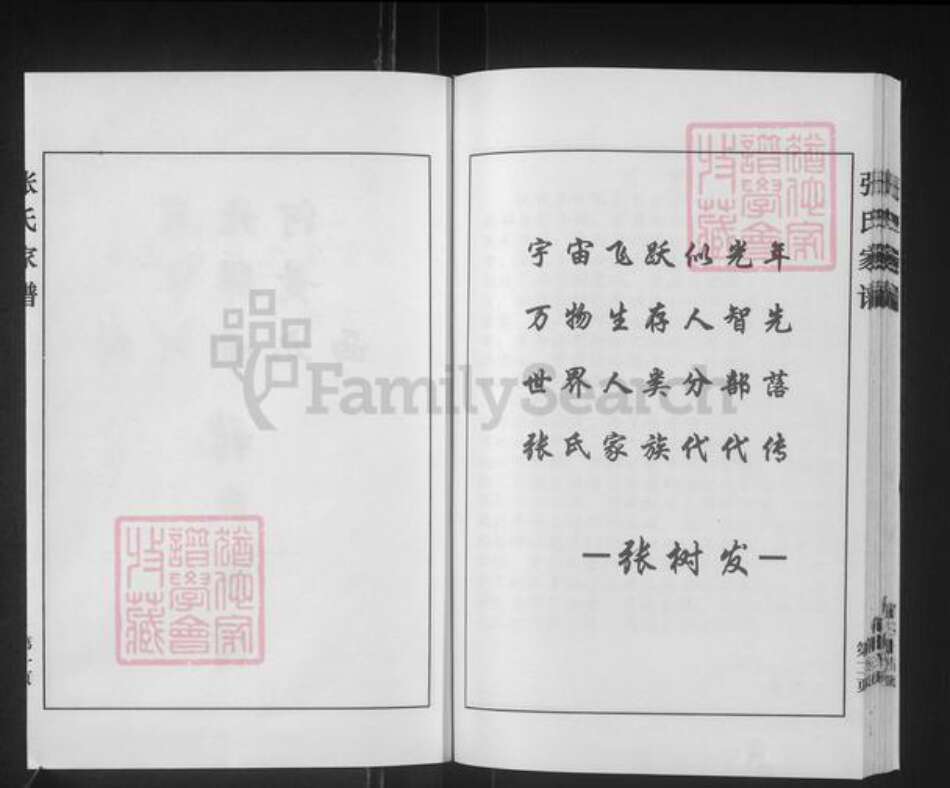 宇宙飞跃似光年
万物生存人智先
世界人类分部落
张氏家族代代传
—张树发—
张氏家谱
张氏家谱
猶他家譜學會收藏
猶他家譜學會收藏
FamilySearch